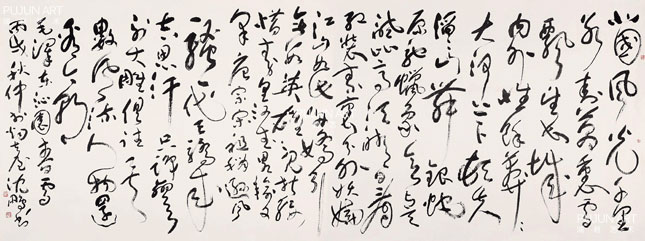 北国风光千里
冰封万里雪
飘望长城
内外惟余莽莽
大河上下顿失
滔滔山舞银蛇
原驰蜡象欲与天
公试比高须晴日看
红装素裹分外妖娆
江山如此多娇引
无数英雄竞折腰
惜秦皇汉武略输文
采唐宗宋祖稍逊风
骚一代天骄成
吉思汗只识弯弓
射大雕俱往矣
数风流人物还
看今朝
毛泽东沁园春雪
丙戌秋仲 沈鹏书
PUJUN ART
PUJUN ART